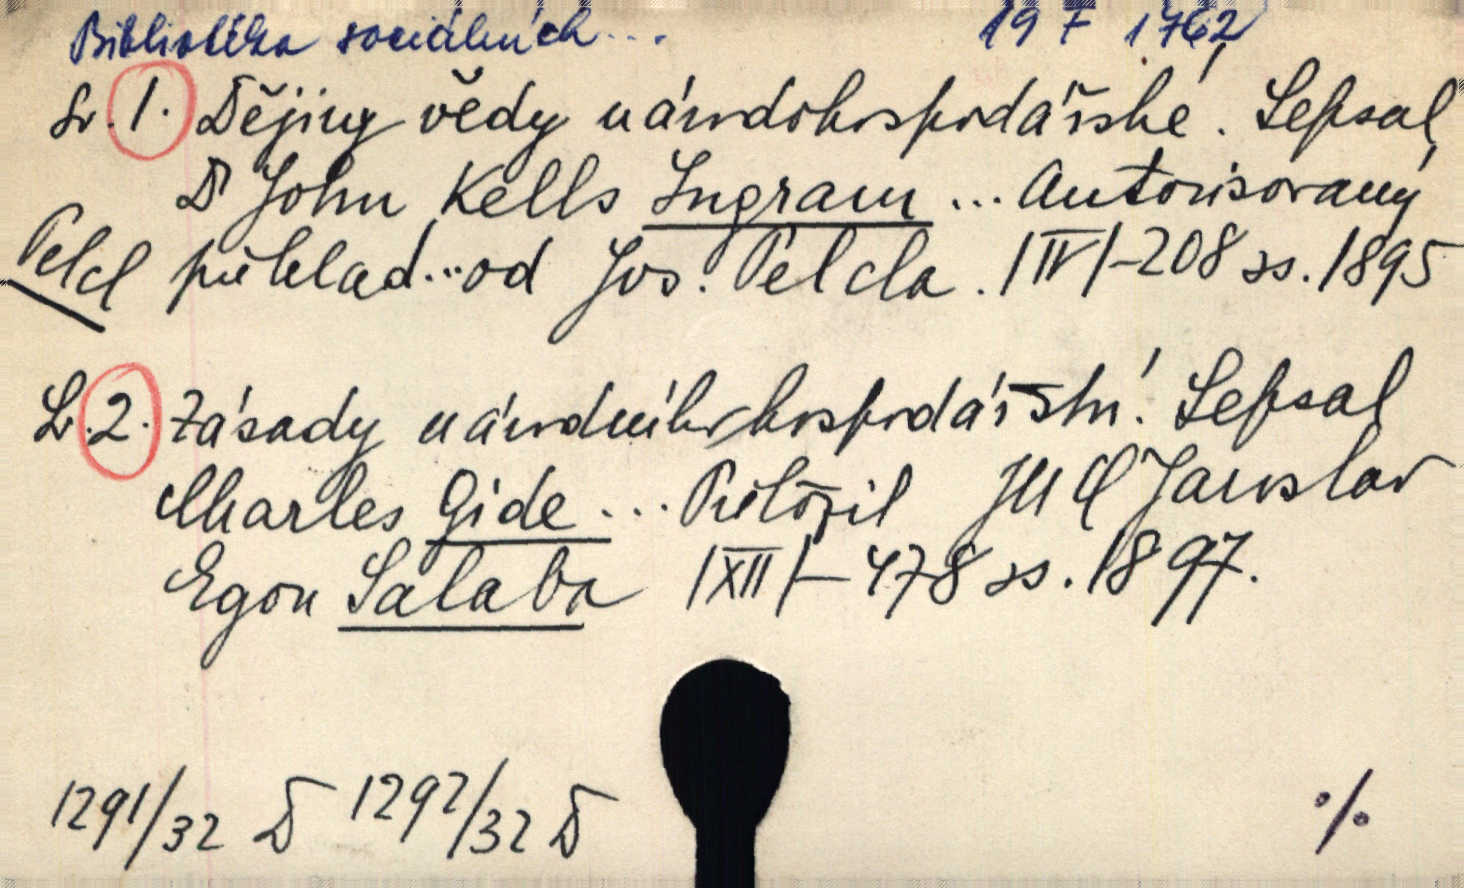 Bibliotéka sociálních... 19 F 1762
Sv. 1. Dějiny vědy národohospodářské. Sepsal
Dr John Kells Ingram ... Autorisovaný
Pelcl překlad...od Jos. Pelcla. |IV|-208 ss. 1895
Sv. 2. Zásady národního hospodářství. Sepsal
Charles Gide ... Přeložil JUC Jaroslav
Egon Salaba |XII|-478 ss. 1897.
1291/32 D 1292/32 D ./.